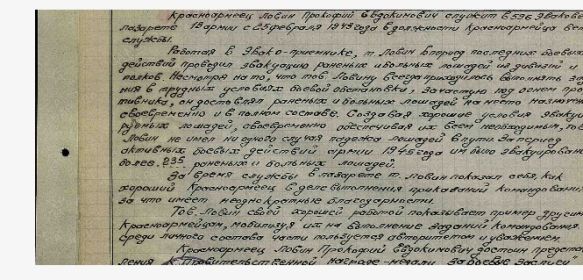 Красноармеец Лавин Прокофий Евдокимович служит в 596 Эвако
лазарете 13 армии с 25 февраля 1943 года в должности Красноармейца вет
службы.
Работая в Эвако-приемнике, т. Лавин в период последних боевых
действий проводил эвакуацию раненых и больных лошадей из дивизий и
полков. Несмотря на то, что тов. Лавину всегда приходилось выполнять за
ния в трудных условиях боевой обстановки, зачастую под огнем про
тивника, он доставлял раненых и больных лошадей на место назнач
своевременно и в полном составе. Создавая хорошие условия эваку
руемых лошадей, своевременно обеспечивая их всем необходимым, т.
Лавин не имел ни одного случая падежа лошадей в пути. За период
активных боевых действий армии 1945 года им было эвакуирован
более 235 раненых и больных лошадей.
За время службы в лазарете т. Лавин показал себя, как
хороший Красноармеец в деле выполнения приказаний Командован
за что имеет неоднократные благодарности.
Тов. Лавин своей хорошей работой показывает пример други
Красноармейцам, мобилизуя их на выполнение заданий Командования.
Среди личного состава части пользуется авторитетом и уважением.
Красноармеец Лавин Прокофий Евдокимович достоин предста
ления к Правительственной награде - медали "За боевые заслуги"